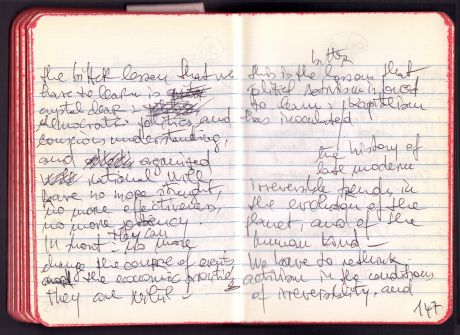 the bitter lesson that we
have to learn is
crystal clear:
democratic politics and
conscious understanding,
and organized
national will
have no more strength,
no more effectiveness,
no more potency.
They can
In most no more
change the course of events
and the economic priorities
they are
bitter
this is the lesson that
political activism is forced
to learn: capitalism
has inoculated
the history of
late modern
irreversible trends in
the evolution of the
planet, and of the
human kind —
We have to rethink
activism in the conditions
of irreversibility, and
147